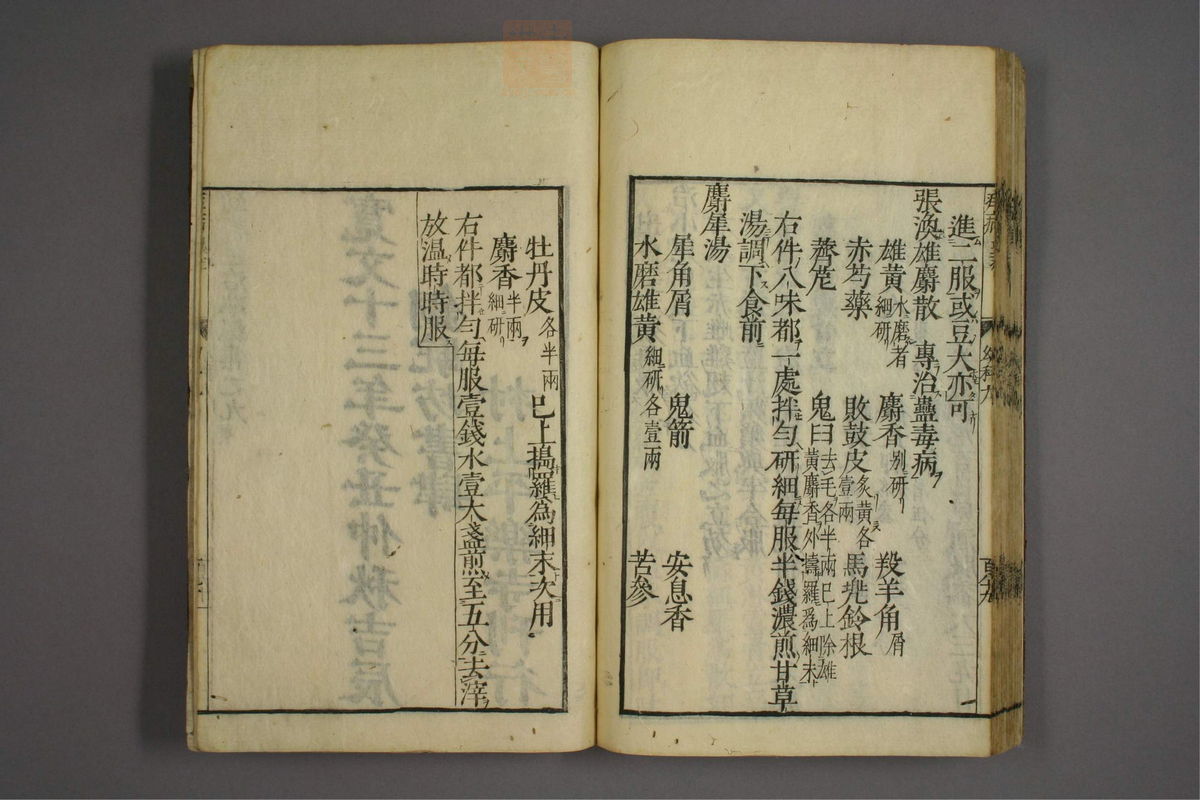 進二服或豆大亦可
張渙雄麝散 專治蠱毒病
雄黃水磨者細研 麝香别研 羖羊角屑
赤芍藥 敗鼓皮炙黃各壹兩 馬兠鈴根
薺苨 鬼臼去毛各半兩已上除雄黃麝香外擣羅爲細末
右件八味都一處拌勻研細每服半錢濃煎甘草
湯調下食前
麝犀湯
犀角屑 鬼箭 安息香
水磨雄黃細研各壹兩 苦參
牡丹皮各半兩已上搗羅為細末次用
麝香半兩細研
右件都拌勻每服壹錢水壹大盞煎至五分去滓
放温時時服